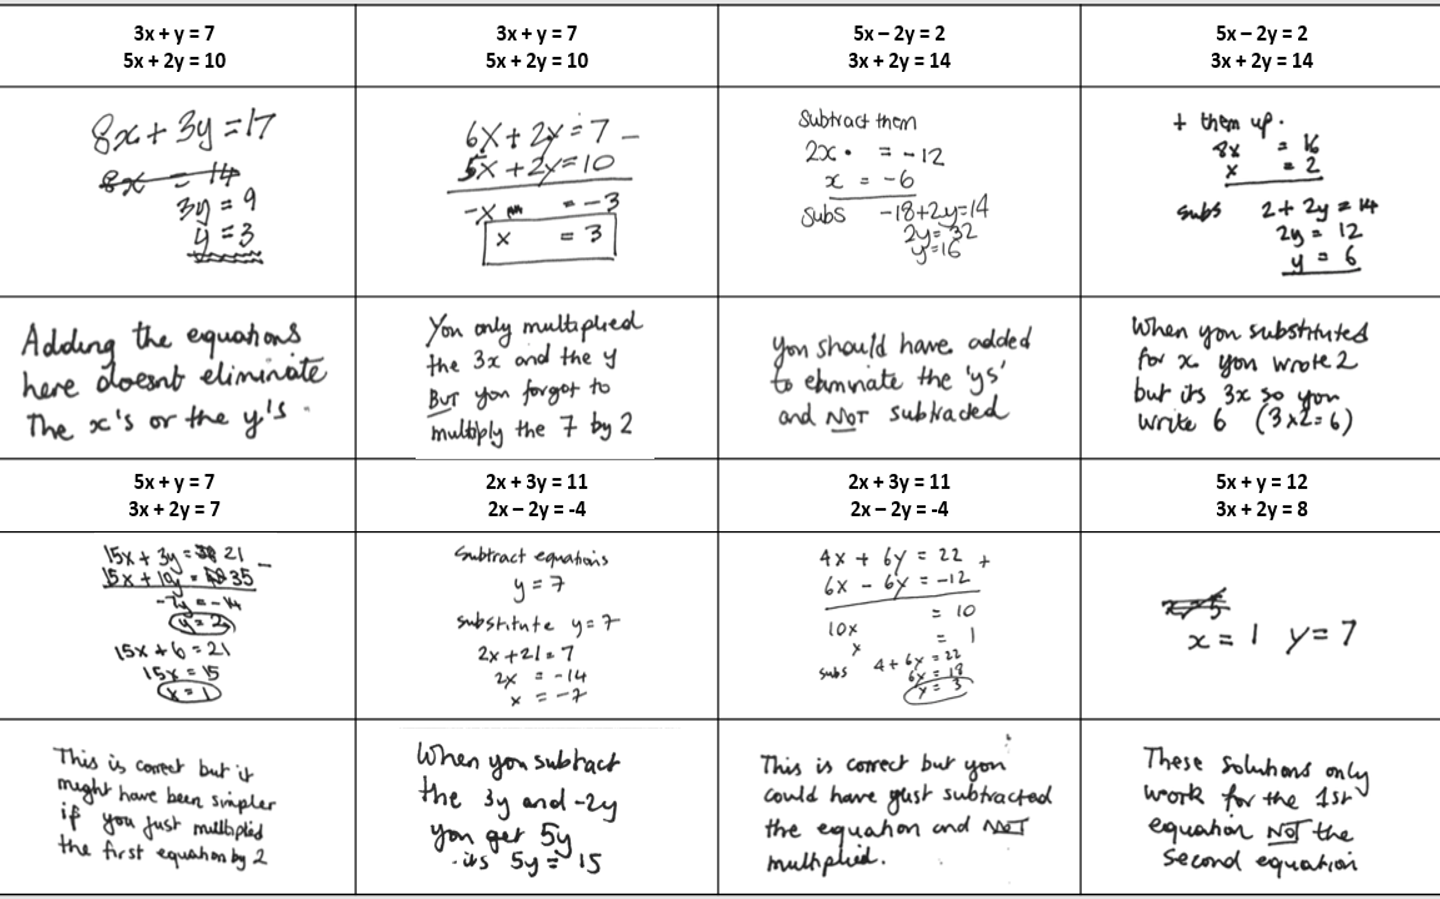 3x + y = 7
5x + 2y = 10
3x + y = 7
5x + 2y = 10
5x – 2y = 2
3x + 2y = 14
5x – 2y = 2
3x + 2y = 14
8x + 3y = 17
8x = 14
3y = 9
y = 3
6x + 2y = 7 –
5x + 2y = 10
-x = -3
x = 3
Subtract them
2x = -12
x = -6
Subs -18+2y=14
2y = 32
y=16
+ them up.
8x = 16
x = 2
subs 2 + 2y = 14
2y = 12
y = 6
Adding the equations
here doesnt eliminate
The x's or the y's.
You only multiplied
the 3x and the y
BUT you forgot to
multiply the 7 by 2
you should have added
to eliminate the 'ys'
and NOT subtracted
When you substituted
for x you wrote 2
but its 3x so you
write 6 (3x2=6)
5x + y = 7
3x + 2y = 7
2x + 3y = 11
2x – 2y = -4
2x + 3y = 11
2x – 2y = -4
5x + y = 12
3x + 2y = 8
15x + 3y = 21 –
15x + 10y = 35
-7y = -14
y = 2
15x + 6 = 21
15x = 15
x = 1
Subtract equations
y = 7
substitute y = 7
2x + 21 = 7
2x = -14
x = -7
4x + 6y = 22 +
6x – 6y = -12
10x = 10
x = 1
subs 4 + 6y = 22
6y = 18
y = 3
x = 1 y = 7
This is correct but it
might have been simpler
if you just multiplied
the first equation by 2
When you subtract
the 3y and -2y
you get 5y
its 5y = 15
This is correct but you
could have just subtracted
the equation and NOT
multiplied.
These solutions only
work for the 1st
equation NOT the
second equation